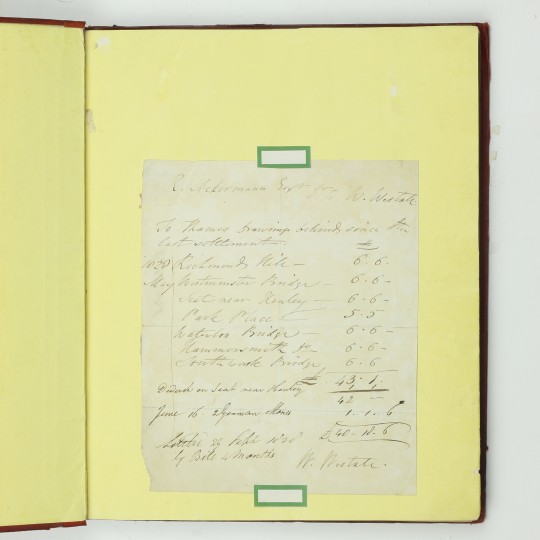 R. Ackermann Esqr for W. Westall
To Thames Drawings behind since the
last settlement. £
1828 Richmond Hill — 6 - 6 -
May Westminster Bridge — 6 - 6 -
Seat near Henley — 6 - 6 -
Park Place — 5 - 5
Waterloo Bridge — 6 - 6 -
Hammersmith Do — 6 - 6 -
Southwark Bridge 6 - 6
£ 43 - 1 -
Deduct on Seat near Henley 1 - 1
42 —
June 16 2 German 1 - 1 - 6
£ 40 - 18 - 6
Settled 29 Sept 1828
by Bill 4 Months W. Westall.